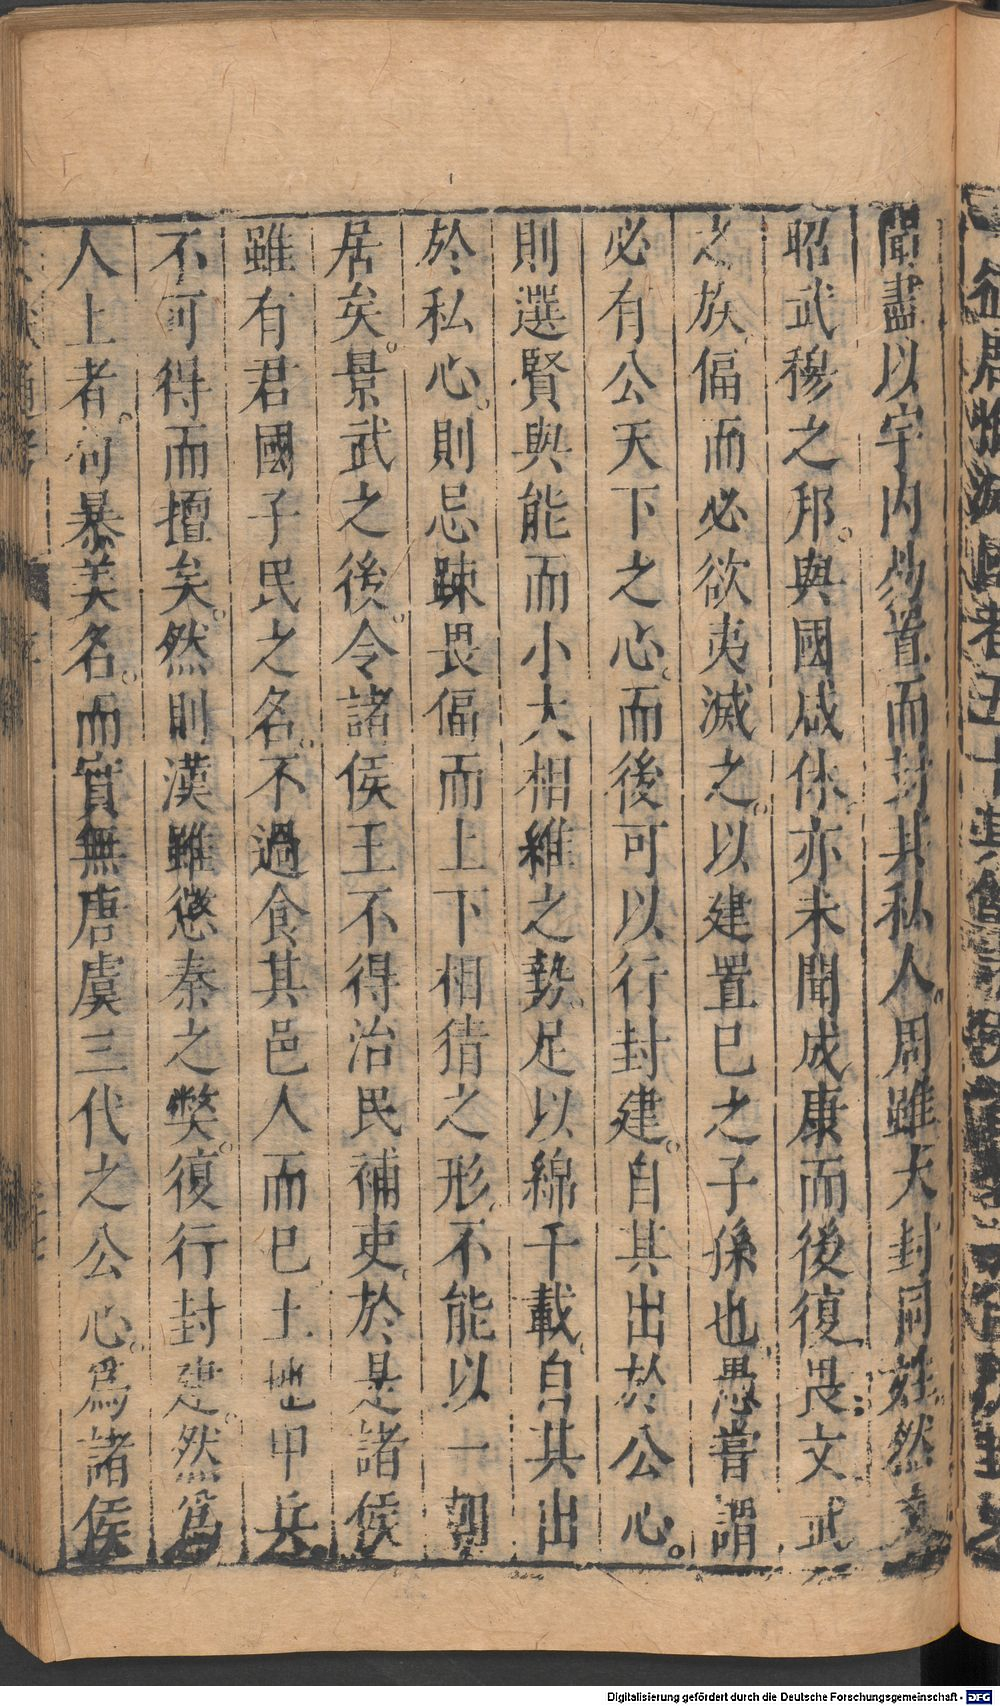 聞盡以宇內易置而封其私人。周雖大封同姓。然文
昭武穆之邦。與國咸休。亦未聞成康而後復畏文武
之族偪而必欲夷滅之。以建置已之子孫也。愚嘗謂
必有公天下之心。而後可以行封建。自其出於公心。
則選賢與能而小大相維之勢。足以綿千載。自其出
於私心。則忌踈畏偪而上下相猜之形。不能以一朝
居矣。景武之後。令諸侯王不得治民補吏。於是諸侯
雖有君國子民之名。不過食其邑人而已。土地甲兵
不可得而擅矣。然則漢雖懲秦之弊。復行封建。然爲
人上者。苟慕美名。而實無唐虞三代之公心。爲諸侯
Digitalisierung gefördert durch die Deutsche Forschungsgemeinschaft - DFG